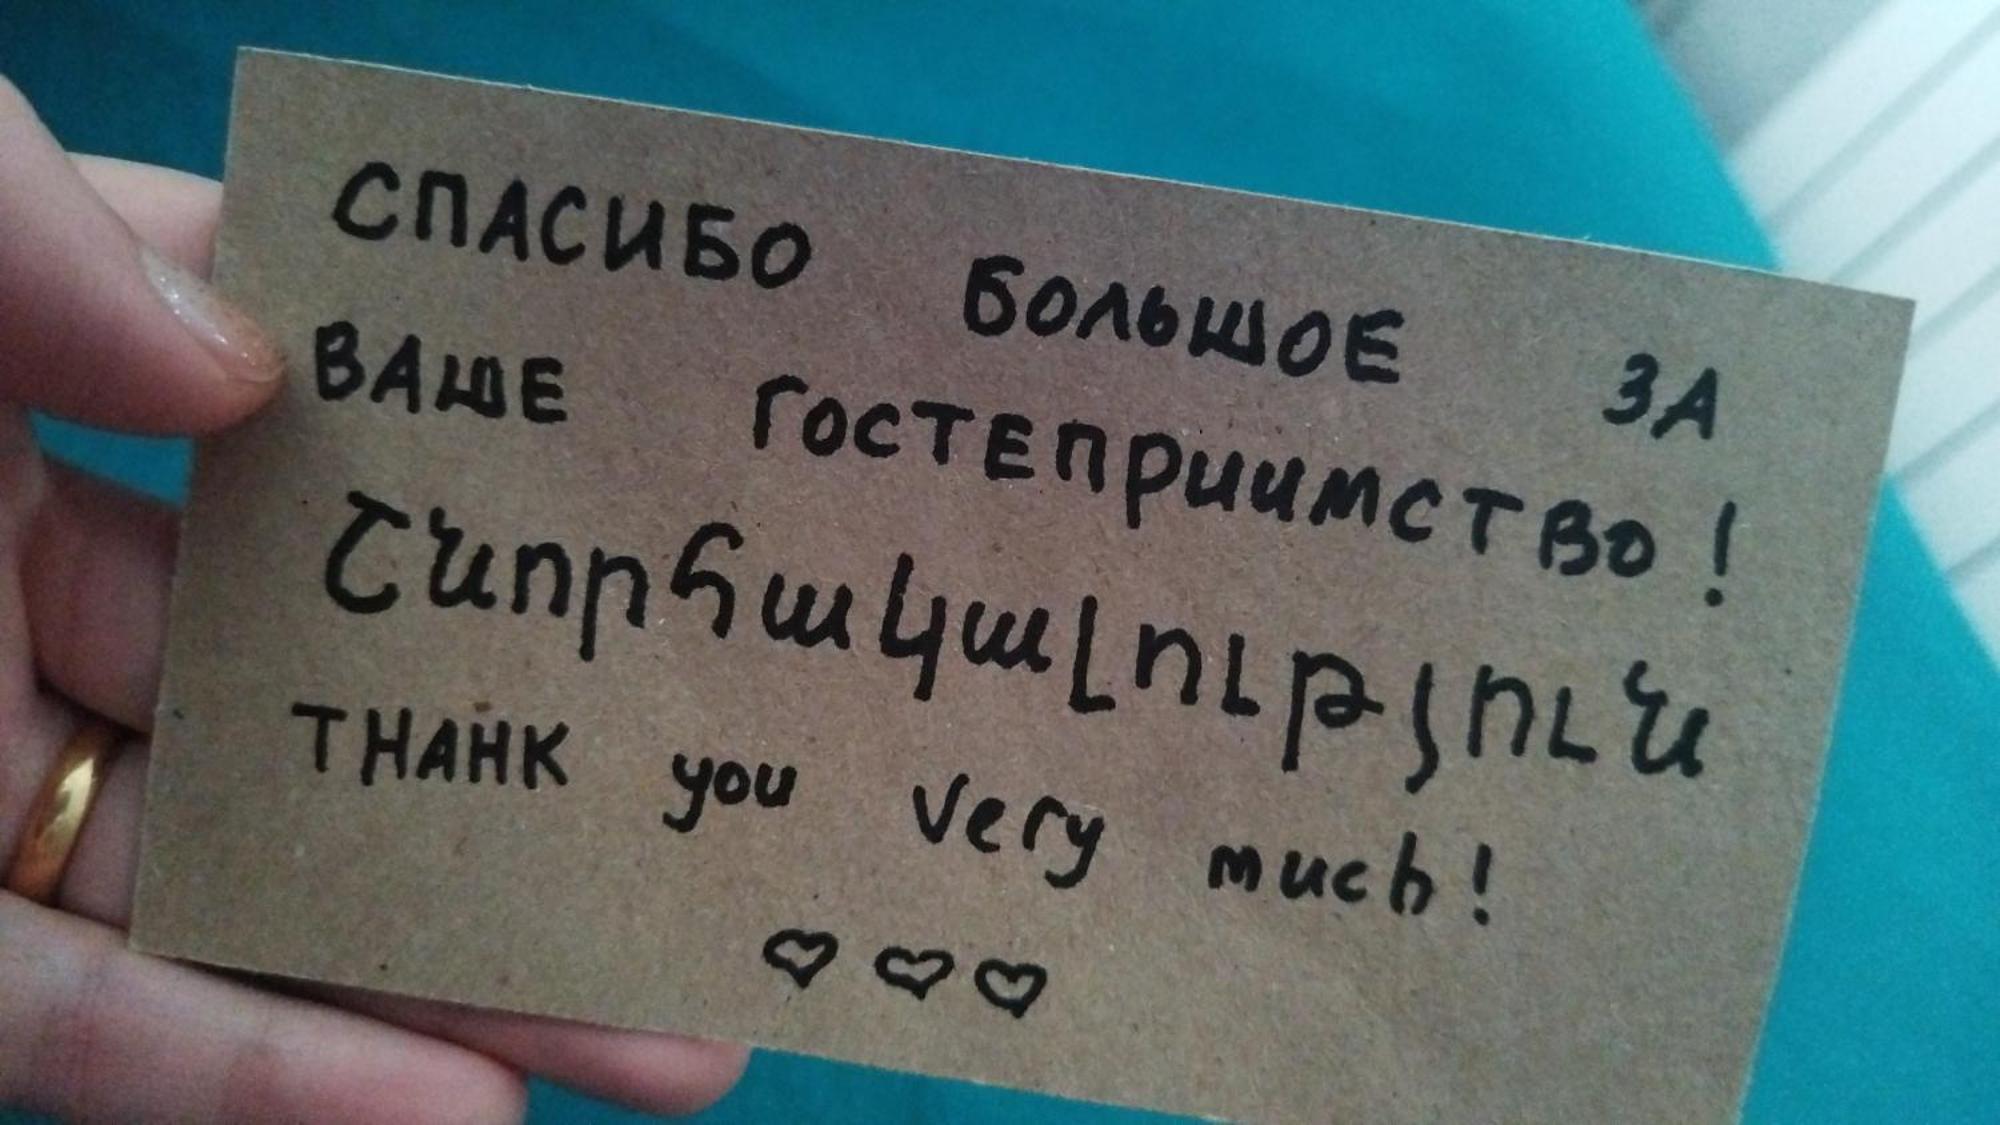 СПАСИБО БОЛЬШОЕ ЗА
ВАШЕ ГОСТЕПРИИМСТВО!
Շնորհակալություն
THANK you very much!
♡♡♡